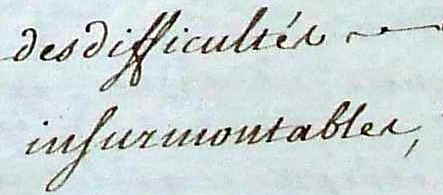 des difficultés
insurmontables,